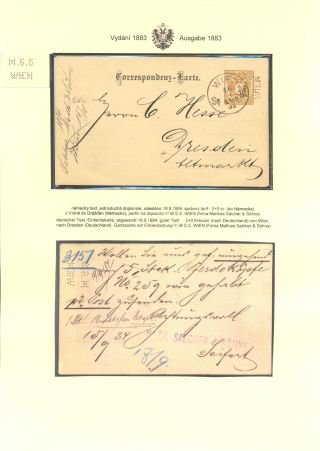 Vydání 1883
Ausgabe 1883
M.S.S
WIEN
Correspondenz-Karte.
WIEN
Herrn C. Hesse
Dresden
Altmarkt
německý text, jednoduchá dopisnice, odesláno 16.9.1884, správný tarif: 2+0 kr. (do Německa)
z Vídně do Drážďan (Německo), perfin na dopisnici M.S.S. WIEN (Firma Mathias Salcher & Söhne)
deutscher Text, Einfachekarte, abgesandt 16.9.1884, guter Tarif : 2+0 Kreuzer (nach Deutschland) von Wien,
nach Dresden (Deutschland), Ganzsache mit Firmenlochung M.S.S. WIEN (Firma Mathias Salcher & Söhne)
3151
Wollen Sie uns gef. umgehend
5 Stck. Pferdeköpfe
No. 259 wie gehabt
p. Post zusenden.
Achtungsvoll
SALCHER & SÖHNE
15/9 84
18/9
Seifert